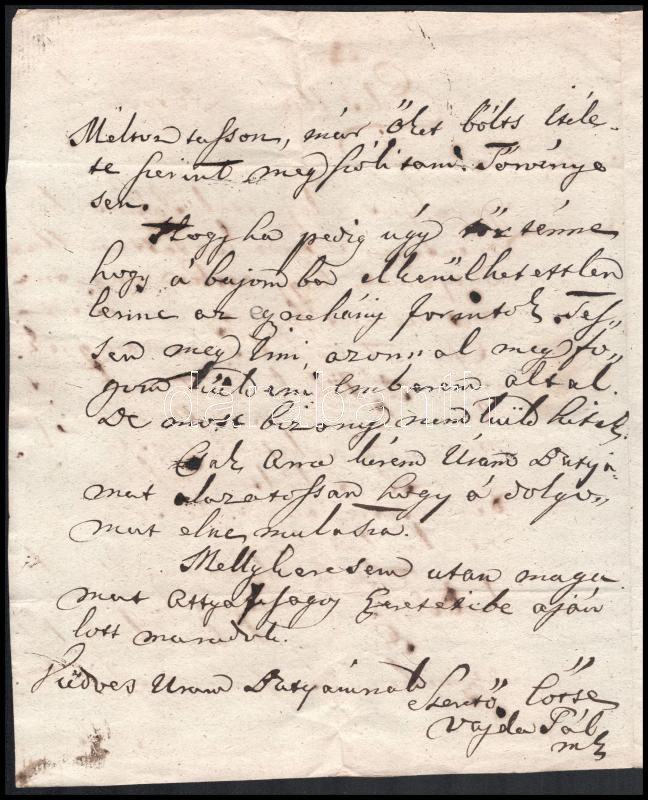 Méltoztasson, már őket bőlts Itéle-
te szerint meg szólitani Törvénye
sen.
Hogyha pedig úgy történne
hogy á bajomba elkerűlhetettlen
lenne az egynehány forintok Tes,,
sen meg Irni, azonnal meg fo,,
gom küldeni Emberem által.
De most bizony nem küldhetek.
Csak Arra kérem Uram Bátyá-
mat alazatossan hogy á dolgo,,
mat elne mulassa.
Melly keresem utan maga
mat Attyafiságos Szeretetibe aján
lott maradok.
Kedves Uram Bátyámnak
Szerető Öttse
Vajda Pál
mk